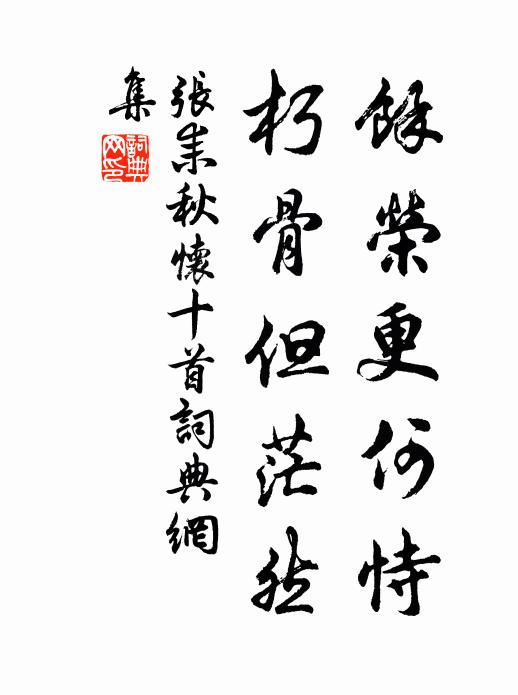 餘榮更何恃
朽骨但茫然
張耒秋懷十首詞典網
集
詞典網印